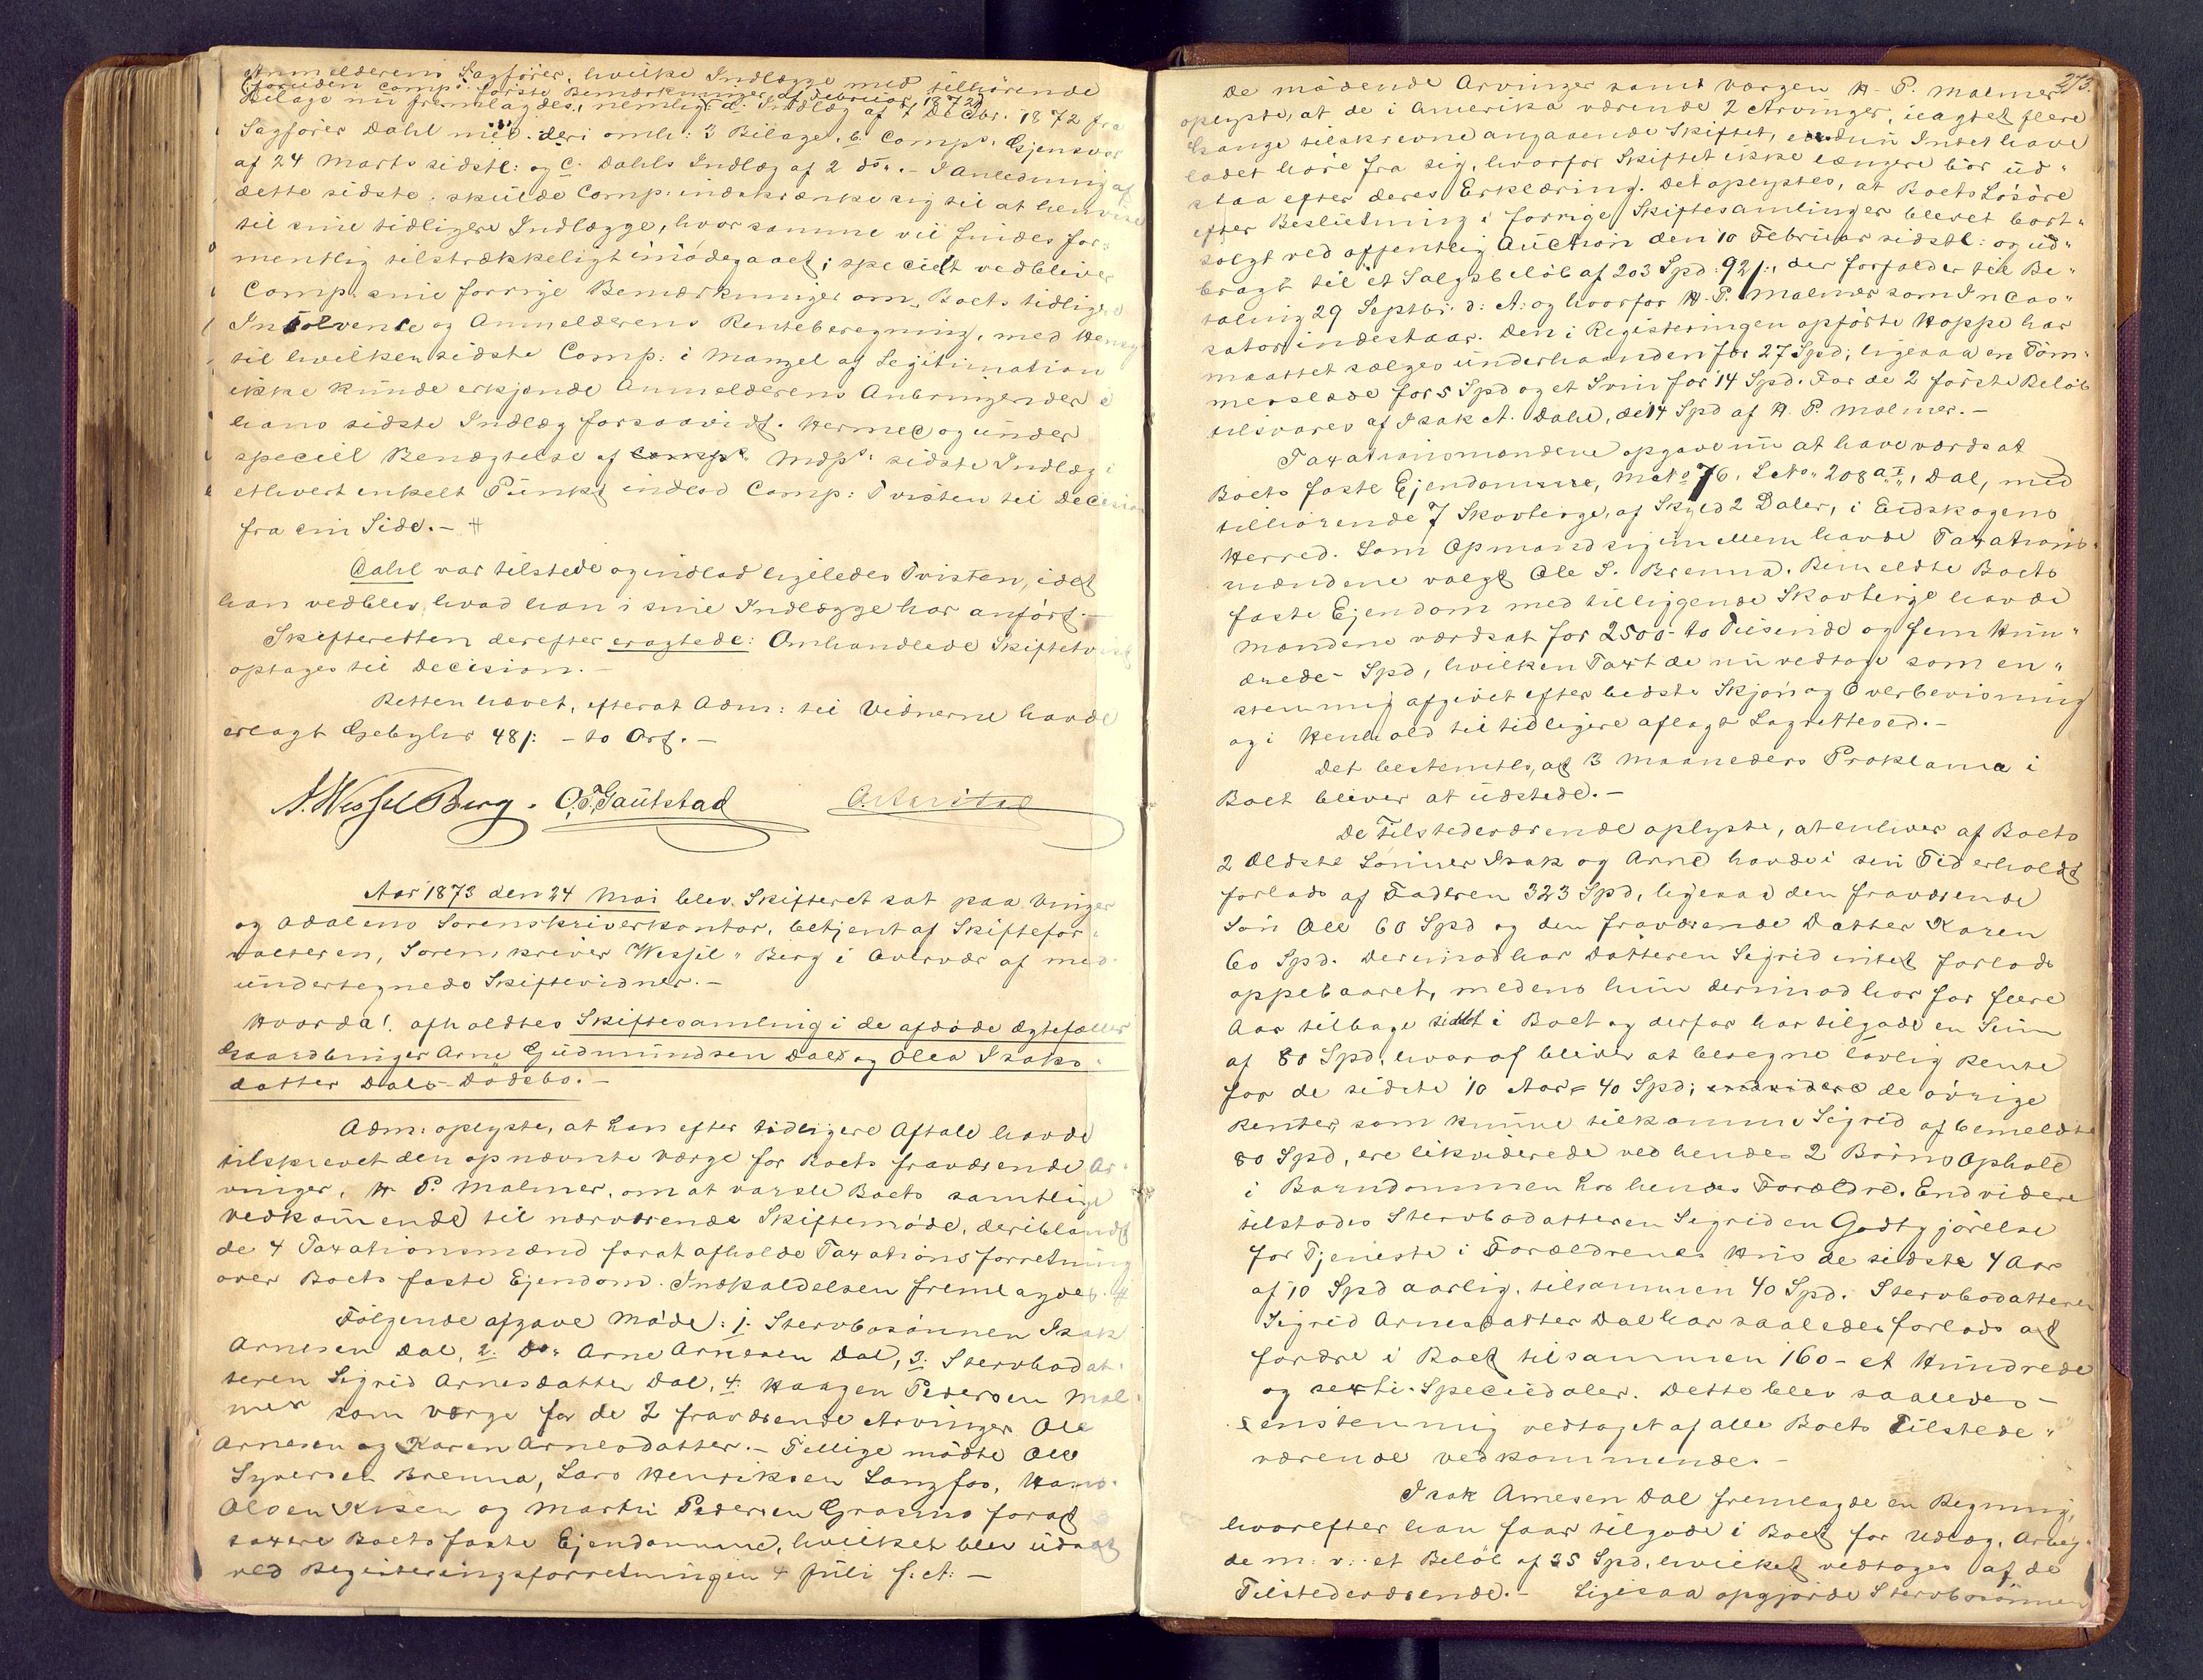 Anmelderens Sagfører, hvilke Indlægge med tilhørende
foruden Comp: første Bemærkninger af Februar 1872
Bilage nu fremlagdes, nemlig: a. Indlæg af 7 Decbr. 1872 fra
Sagfører Dahl med deri omh: 3 Bilage, b. Comps. Gjensvar
af 24 Marts sidstl: og c. Dahls Indlæg af 2 ds". - I Anledning af
dette sidste skulde Comp: indskrænke sig til at henvise
til sine tidligere Indlægge, hvor samme vil findes for-
mentlig tilstrækkeligt imødegaaet; specielt vedbliver
Comp. sine forrige Bemærkninger om Boets tidligere
Insolvence og Anmelderens Renteberegning, med Hensyn
til hvilken sidste Comp: i Mangel af Legitimation
ikke kunde erkjende Anmelderens Anbringender i
hans sidste Indlæg forsaavidt. Hermed og under
speciel Benægtelse af Comps. Mdps. sidste Indlæg i
ethvert enkelt Punkt indlod Comp: Tvisten til Decision
fra sin Side. - #
Dahl var tilstede og indlod ligeledes Tvisten, idet
han vedblev, hvad han i sine Indlægge har anført. -
Skifteretten derefter eragtede: Omhandlede Skiftetvist
optages til Decision. -
Retten hævet, efterat Adm: til Vidnerne havde
erlagt Gebyhr 48 ſ: - to Ort. -
N. Wessel Berg. O. T. Gaustad
Aar 1873 den 24 Mai blev Skifteret sat paa Vinger
og Odalens Sorenskriverkontor, betjent af Skiftefor-
valteren, Sorenskriver Wessel-Berg i Overvær af med-
undertegnede Skiftevidner. -
Hvorda! afholdtes Skiftesamling i de afdøde Ægtefæller
Gaardbruger Arne Gudmundsen Dals og Olea Isaks-
datter Dals Dødsbo. -
Adm: oplyste, at han efter tidligere Aftale havde
tilskrevet den opnævnte Værge for Boets fraværende Ar-
vinger, H. P. Malmer, om at varsle Boets samtlige
vedkommende til nærværende Skiftemøde, deriblandt
de 4 Taxationsmænd forat afholde Taxationsforretning
over Boets faste Ejendom. Indkaldelsen fremlagdes. #
Følgende afgave Møde: 1. Stervbosønnen Isak
Arnesen Dal, 2. Do" Arne Arnesen Dal, 3. Stervbodat-
teren Sigrid Arnesdatter Dal, 4. Haagen Pedersen Mal-
mer som Værge for de 2 fraværende Arvinger Ole
Arnesen og Karen Arnesdatter. - Tillige mødte Ole
Syversen Brenna, Lars Henriksen Langfos, Hans
Olsen Kisen og Martin Pedersen Grasmo forat
taxere Boets faste Ejendomme, hvilket blev udsat
ved Registeringsforretningen 4 Juli f: A: -
273.
De mødende Arvinger samt Værgen H. P. Malmer
oplyste, at de i Amerika værende 2 Arvinger, uagtet flere
Gange tilskrevne angaaende Skiftet, endnu Intet have
ladet høre fra sig, hvorfor Skiftet ikke længere bør ud-
staa efter deres Erklæring. Det oplystes, at Boets Løsøre
efter Beslutning i forrige Skiftesamlinger blevet bort-
solgt ved offentlig Auction den 10 Februar sidstl: og ud-
bragt til et Salgsbeløb af 203 Spd: 92 ſ:, der forfalder til Be-
taling 29 Septbr. d: A: og hvorfor H. P. Malmer som Incas-
sator indestaar. Den i Registeringen opførte Hoppe har
maattet sælges underhaanden for 27 Spd; ligesaa en Tøm-
merslæde for 5 Spd og et Svin for 14 Spd. For de 2 første Beløb
tilsvares af Isak A. Dahl, de 14 Spd af H. P. Malmer. -
Taxationsmændene opgave nu at have værdsat
Boets faste Ejendomme, Mat No 76, L. No. 208 a I", Dal, med
tilhørende 7 Skovteige, af Skyld 2 Daler, i Eidskogens
Herred. Som Opmand sig imellem havde Taxations-
mændene valgt Ole S. Brenna. Bemeldte Boets
faste Ejendom med tilliggende Skovteige havde
Mændene værdsat for 2500 - to Tusinde og fem Hun-
drede - Spd, hvilken Taxt de nu vedtoge som en-
stemmig afgivet efter bedste Skjøn og Overbevisning
og i Henhold til tidligere aflagt Lagrettesed. -
Det bestemtes, at 3 Maaneders Proklama i
Boet bliver at udstede. -
De Tilstedeværende oplyste, at enhver af Boets
2 Ældste Sønner Isak og Arne havde i sin Tid erholdt
forlods af Faderen 323 Spd, ligesaa den fraværende
Søn Ole 60 Spd og den fraværende Datter Karen
60 Spd. Derimod har Datteren Sigrid intet forlods
oppebaaret, medens hun derimod har for flere
Aar tilbage siddet i Boet og derfor har tilgode en Sum
af 80 Spd, hvoraf bliver at beregne lovlig Rente
for de sidste 10 Aar = 40 Spd; de øvrige
Renter som kunne tilkomme Sigrid af bemeldte
80 Spd, ere likviderede ved hendes 2 Børns Ophold
i Barndommen hos hendes Forældre. Endvidere
tilstodes Stervbodatteren Sigrid en Godtgjørelse
for Tjeneste i Forældrenes Hus de sidste 4 Aar
af 10 Spd aarlig, tilsammen 40 Spd. Stervbodatteren
Sigrid Arnesdatter Dal har saaledes forlods at
fordre i Boet tilsammen 160 - et Hundrede
og sexti - Speciedaler. Dette blev saaledes -
enstemmig vedtaget af alle Boets Tilstede-
værende vedkommende. -
Isak Arnesen Dal fremlagde en Regning,
hvorefter han faar tilgode i Boet for Udlæg, Arbej-
de m: v: et Beløb af 25 Spd, hvilket vedtoges af de
Tilstedeværende. - Ligesaa opgjorde Stervbosønnen